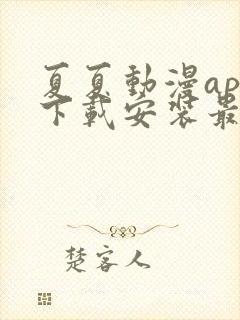 夏夏動漫ap
下載安装最
楚客人